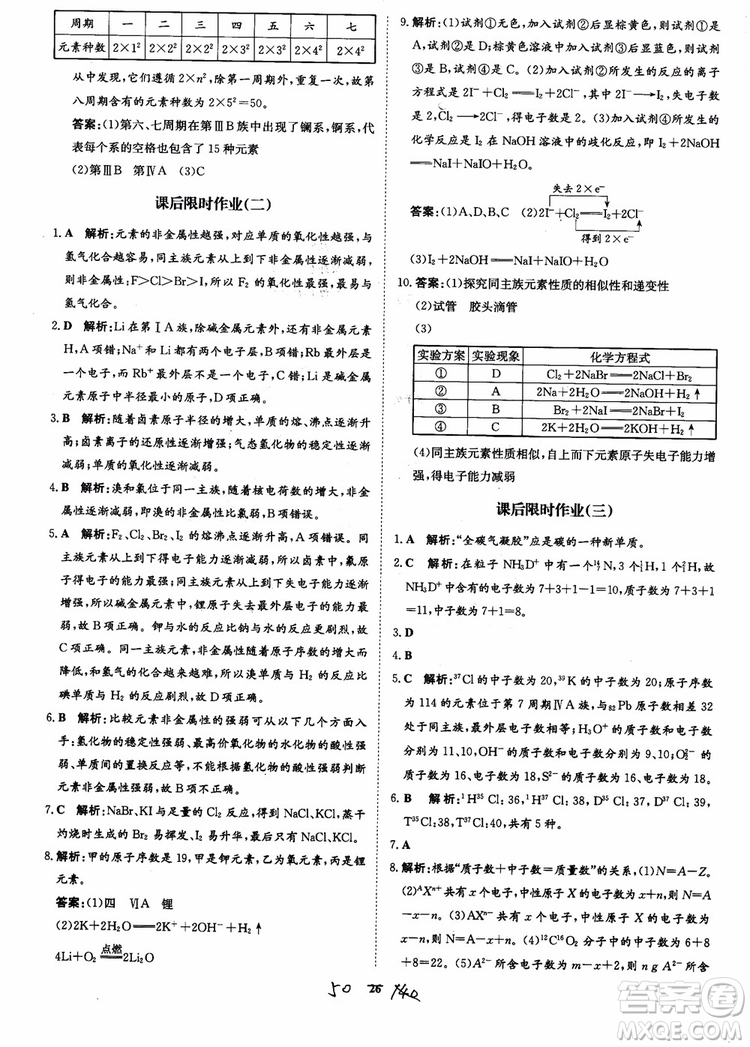 周期 一 二 三 四 五 六 七
元素种数 2×1² 2×2² 2×2² 2×3² 2×3² 2×4² 2×4²
从中发现,它们遵守2×n²,除第一周期外,重复一次,故第
八周期含有的元素种数为2×5²=50。
答案:(1)第六、七周期在第ⅢB族中出现了镧系,锕系,代
表每个系的空格也包含了15种元素
(2)第ⅢB 第ⅣA (3)C
课后限时作业(二)
1. A 解析:元素的非金属性越强,对应单质的氧化性越强,与
氢气化合越容易,同主族从上到下非金属性依次减弱,
则非金属性:F>Cl>Br>I,所以F₂的氧化性最强,最易与
氢气化合。
2. D 解析:Li在第ⅠA族,除碱金属元素外,还有非金属元素
H,A项错;Na⁺和Li⁺相差一个电子层,B项错;Rb最外层只有
一个电子,Rb⁺最外层有8个电子,C项错;碱金属从上到下
随电子层数的增多原子半径逐渐增大,D项正确。
3. B 解析:随着卤素原子半径的增大,单质的熔、沸点逐渐升
高;卤素离子的还原性逐渐增强;气态氢化物的稳定性逐渐
减弱;单质的氧化能力逐渐减弱。
4. B 解析:溴和氯位于同一主族,随核电荷数的增大,非金
属性减弱,即溴的非金属性比氯弱,B错误。
5. A 解析:F₂、Cl₂、Br₂、I₂的熔沸点逐渐升高,故A错误。同
主族从上到下得电子能力逐渐减弱,在卤族元素中,氟原
子得电子能力最强,故B正确。同主族从上到下失去电子
能力增强,所以碱金属元素中,锂原子失去最外层电子的能
力最弱,故B项正确。钾和水的反应比钠与水的反应剧烈,
故C项正确。非金属性随着同主族原子序数的增大而
降低,和氢气的化合越来越难,所以溴单质与H₂的反应比
碘单质与H₂的反应剧烈,故D项正确。
6. B 解析:比较元素非金属性的强弱可以从以下几个方面入
手:氢化物的稳定性强弱、最高价氧化物的水化物的酸性强
弱、单质间的置换反应等,不能用氢化物水溶液的酸性强弱判断
元素的非金属性强弱,故B项不正确。
7. C 解析:NaBr、KI与足量的Cl₂反应生成NaCl、KCl,蒸干
灼烧时生成的Br₂易挥发、I₂易升华,故最后剩余NaCl、KCl。
8. 解析:甲的原子序数是19,甲是钾元素,乙是氧元素,丙是锂
元素。
答案:(1)四 ⅥA 锂
(2)2K+2H₂O══2K⁺+2OH⁻+H₂↑
4Li+O₂ 点燃══ 2Li₂O
9. 解析:(1)无色,加入试剂①无色,加入试剂②后显棕黄色,试剂
①是A、试剂②是D;棕黄色溶液中加入试剂③后显蓝色,则试剂
③是B;加入试剂④蓝色消失,则试剂④是C。(2)发生的反应的离子
方程式为2I⁻+Cl₂══I₂+2Cl⁻,I⁻失电子数为2,Cl₂得电子数
为2。(3)发生的反应是I₂在NaOH溶液中的歧化反应,即I₂+2NaOH══
NaI+NaIO+H₂O。
失去2×e⁻
答案:(1)A、D、B、C (2)2I⁻+Cl₂══I₂+2Cl⁻
得到2×e⁻
(3)I₂+2NaOH══NaI+NaIO+H₂O
10. 答案:(1)探究同主族元素性质的相似性和递变性
(2)试管 胶头滴管
(3)
实验方案 实验现象 化学方程式
① D Cl₂+2NaBr══2NaCl+Br₂
② A 2Na+2H₂O══2NaOH+H₂↑
③ B Br₂+2NaI══2NaBr+I₂
④ C 2K+2H₂O══2KOH+H₂↑
(4)同主族元素性质相似,自上而下元素原子失电子能力增
强,得电子能力减弱
课后限时作业(三)
1. A 解析:“全碳气凝胶”应是碳的一种新单质。
2. C 解析:在粒子NH₃D⁺中的氮是¹⁴₇N,3个¹₁H,1个²₁H,故
NH₃D⁺的电子数为7+3+1-1=10,质子数为7+3×1+1
=11,质子数为11,中子数为7+1=8。
3. D
4. B
5. C 解析:³⁷Cl的中子数为20,³⁹K的中子数为20;原子序数
为114的元素位于第7周期ⅣA族,与₈₂Pb原子序数相差32
处于同主族,最外层电子数相等;H₃O⁺的质子数与电子数
分别为11、10,OH⁻的质子数与电子数分别为9、10;O₂²⁻的电子数
为18,S²⁻的电子数为18。
6. B 解析:¹H³⁵Cl:36,¹H³⁷Cl:38,²H³⁵Cl:37,²H³⁷Cl:39,
T³⁵Cl:38,T³⁷Cl:40。
7. A
8. 解析:根据“质子数+中子数=质量数”的关系,(1)N=A-Z。
(2)ᴬXⁿ⁺共有x个电子,则中性原子X的质子数为x+n,中子数
为A-x-n。(3)ᴬXⁿ⁻共有x个电子,则中性原子X的质子数为
x-n,则N=A-x+n。(4)¹²C¹⁶O₂分子中的中子数为6+8
+8=22。(5)A₂所含电子数为m-n,则n g A₂所含电子数
50 26 140
答案圈